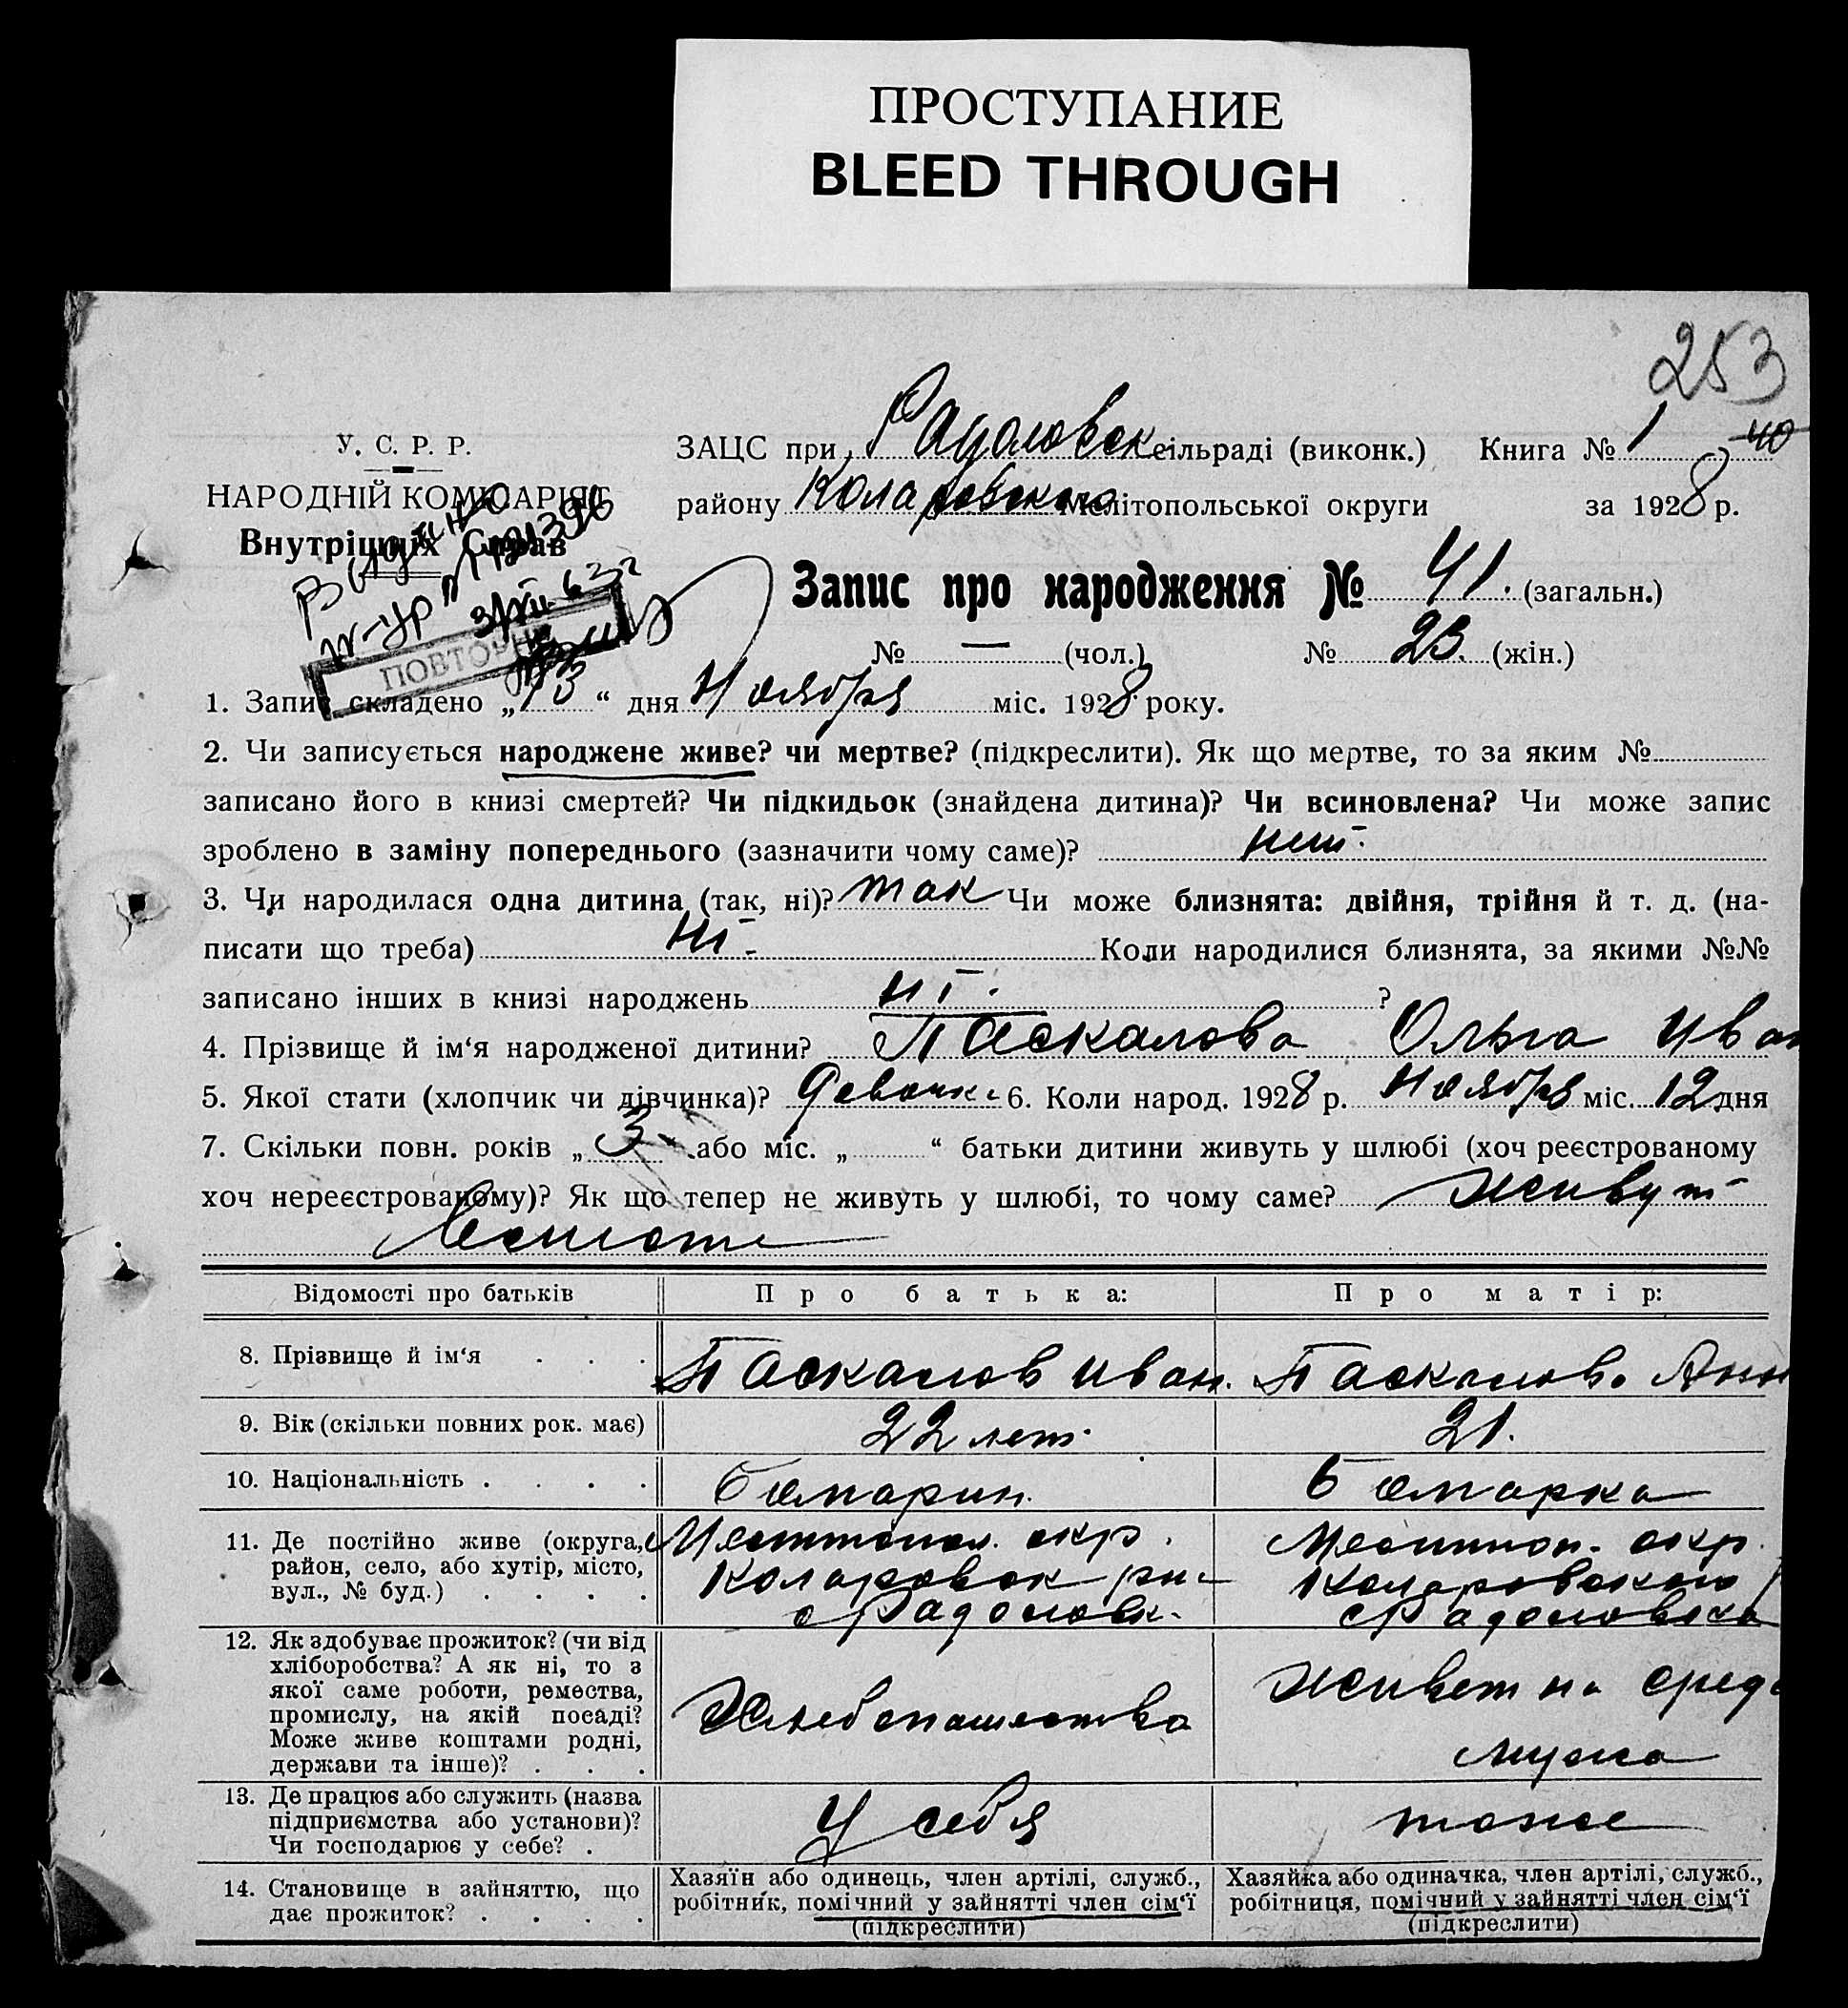 ПРОСТУПАНИЕ
BLEED THROUGH
253
У. С. Р. Р.
НАРОДНІЙ КОМІСАРІЯТ
Внутрішніх Справ
ПОВТОРНЕ
ЗАЦС при Радоловск сільраді (виконк.) Книга № 1 40
району Коларовского Мелітопольської округи за 1928 р.
Запис про народження № 41. (загальн.)
№ — (чол.) № 23. (жін.)
1. Запис складено „13“ дня Ноября міс. 1928 року.
2. Чи записується народжене живе? чи мертве? (підкреслити). Як що мертве, то за яким №
записано його в книзі смертей? Чи підкидьок (знайдена дитина)? Чи всиновлена? Чи може запис
зроблено в заміну попереднього (зазначити чому саме)? нет.
3. Чи народилася одна дитина (так, ні)? так Чи може близнята: двійня, трійня й т. д. (на-
писати що треба) ні Коли народилися близнята, за якими №№
записано інших в книзі народжень ні. ?
4. Прізвище й ім‘я народженої дитини? Паскалова Ольга Иван
5. Якої стати (хлопчик чи дівчинка)? Девочка 6. Коли народ. 1928 р. Ноября міс. 12 дня
7. Скільки повн. років „3“ або міс. „ “ батьки дитини живуть у шлюбі (хоч реєстрованому
хоч нереєстрованому)? Як що тепер не живуть у шлюбі, то чому саме? Живут
Відомості про батьків Про батька: Про матір:
8. Прізвище й ім‘я . . . Паскалов Иван. Паскалова Анн
9. Вік (скільки повних рок. має) 22 лет. 21.
10. Національність . . . . Болгарин. Болгарка
11. Де постійно живе (округа, район, село, або хутір, місто, вул., № буд.) . . . .
Мелитопол. окр.
Коларовск рн
с Радоловк.
Мелитоп. окр.
Коларовского
с Радоловска
12. Як здобуває прожиток? (чи від хліборобства? А як ні, то з якої саме роботи, ремества, промислу, на якій посаді? Може живе коштами родні, держави та інше)? . . .
Хлебопашества
Живет на сред
мужа
13. Де працює або служить (назва підприємства або установи)? Чи господарює у себе? .
У себя
тоже
14. Становище в зайняттю, що дає прожиток? . . . .
Хазяїн або одинець, член артілі, служб.,
робітник, помічний у зайнятті член сім‘ї
(підкреслити)
Хазяйка або одиначка, член артілі, служб.,
робітниця, помічний у зайнятті член сім‘ї
(підкреслити)